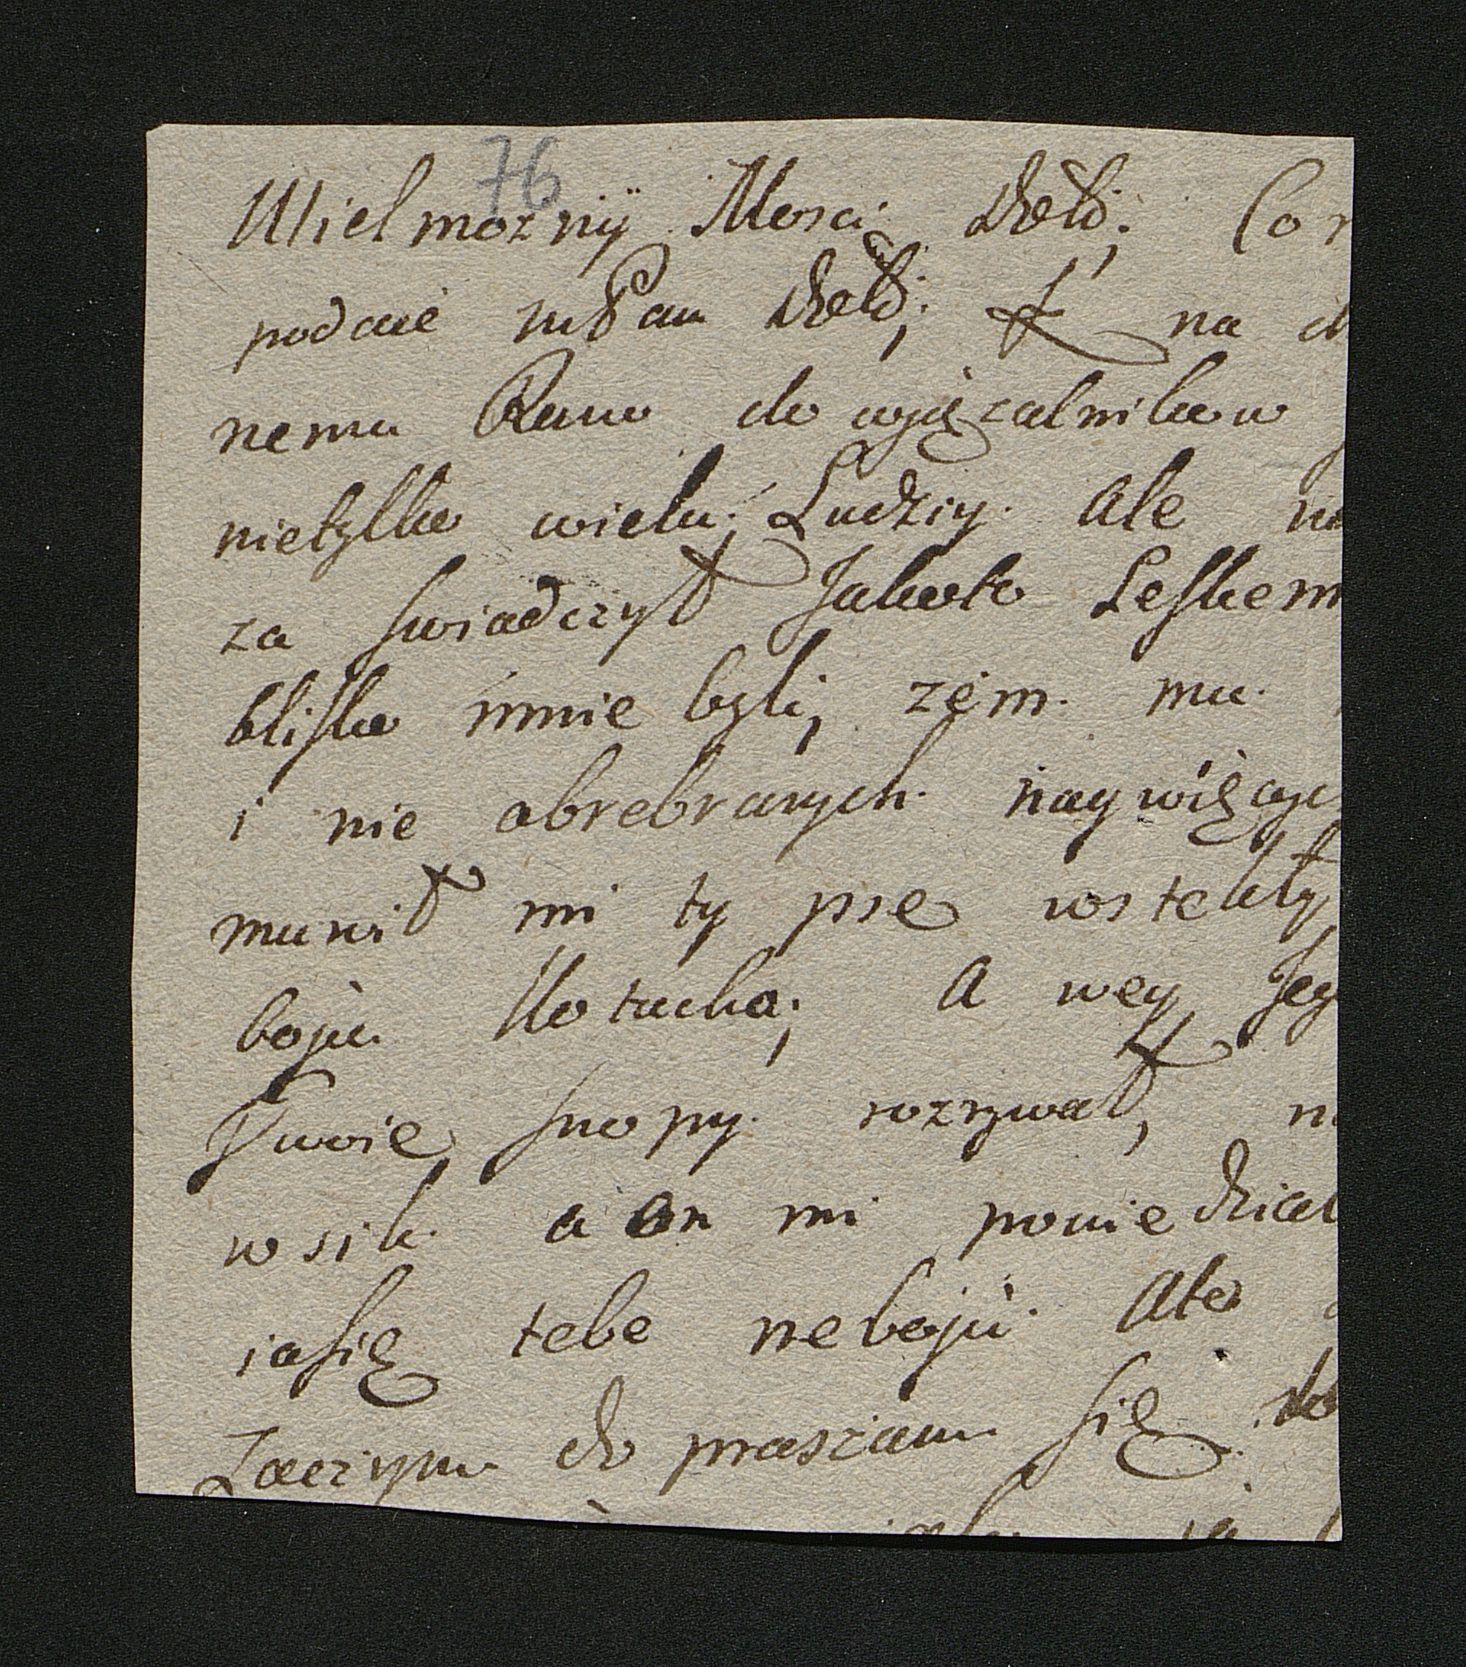 76
Wielmozny Mosci Dobř; Co
podcié Dobř; na
nemu Rano do wjązalnikow
nietylko wielu; Ludziy. Ale
za swiadczył Jakoto Leskem
blisko mnie byli; zem. mu.
i nie obrebranych. naywięcyc
mi ty psie wstekły
boju. Kotucha; A wey Jeg
Twoie snopy. rozrywał,
w sik. a on mi powiedział
iasię tebe neboju. Ale
Zaczym do praszam się do